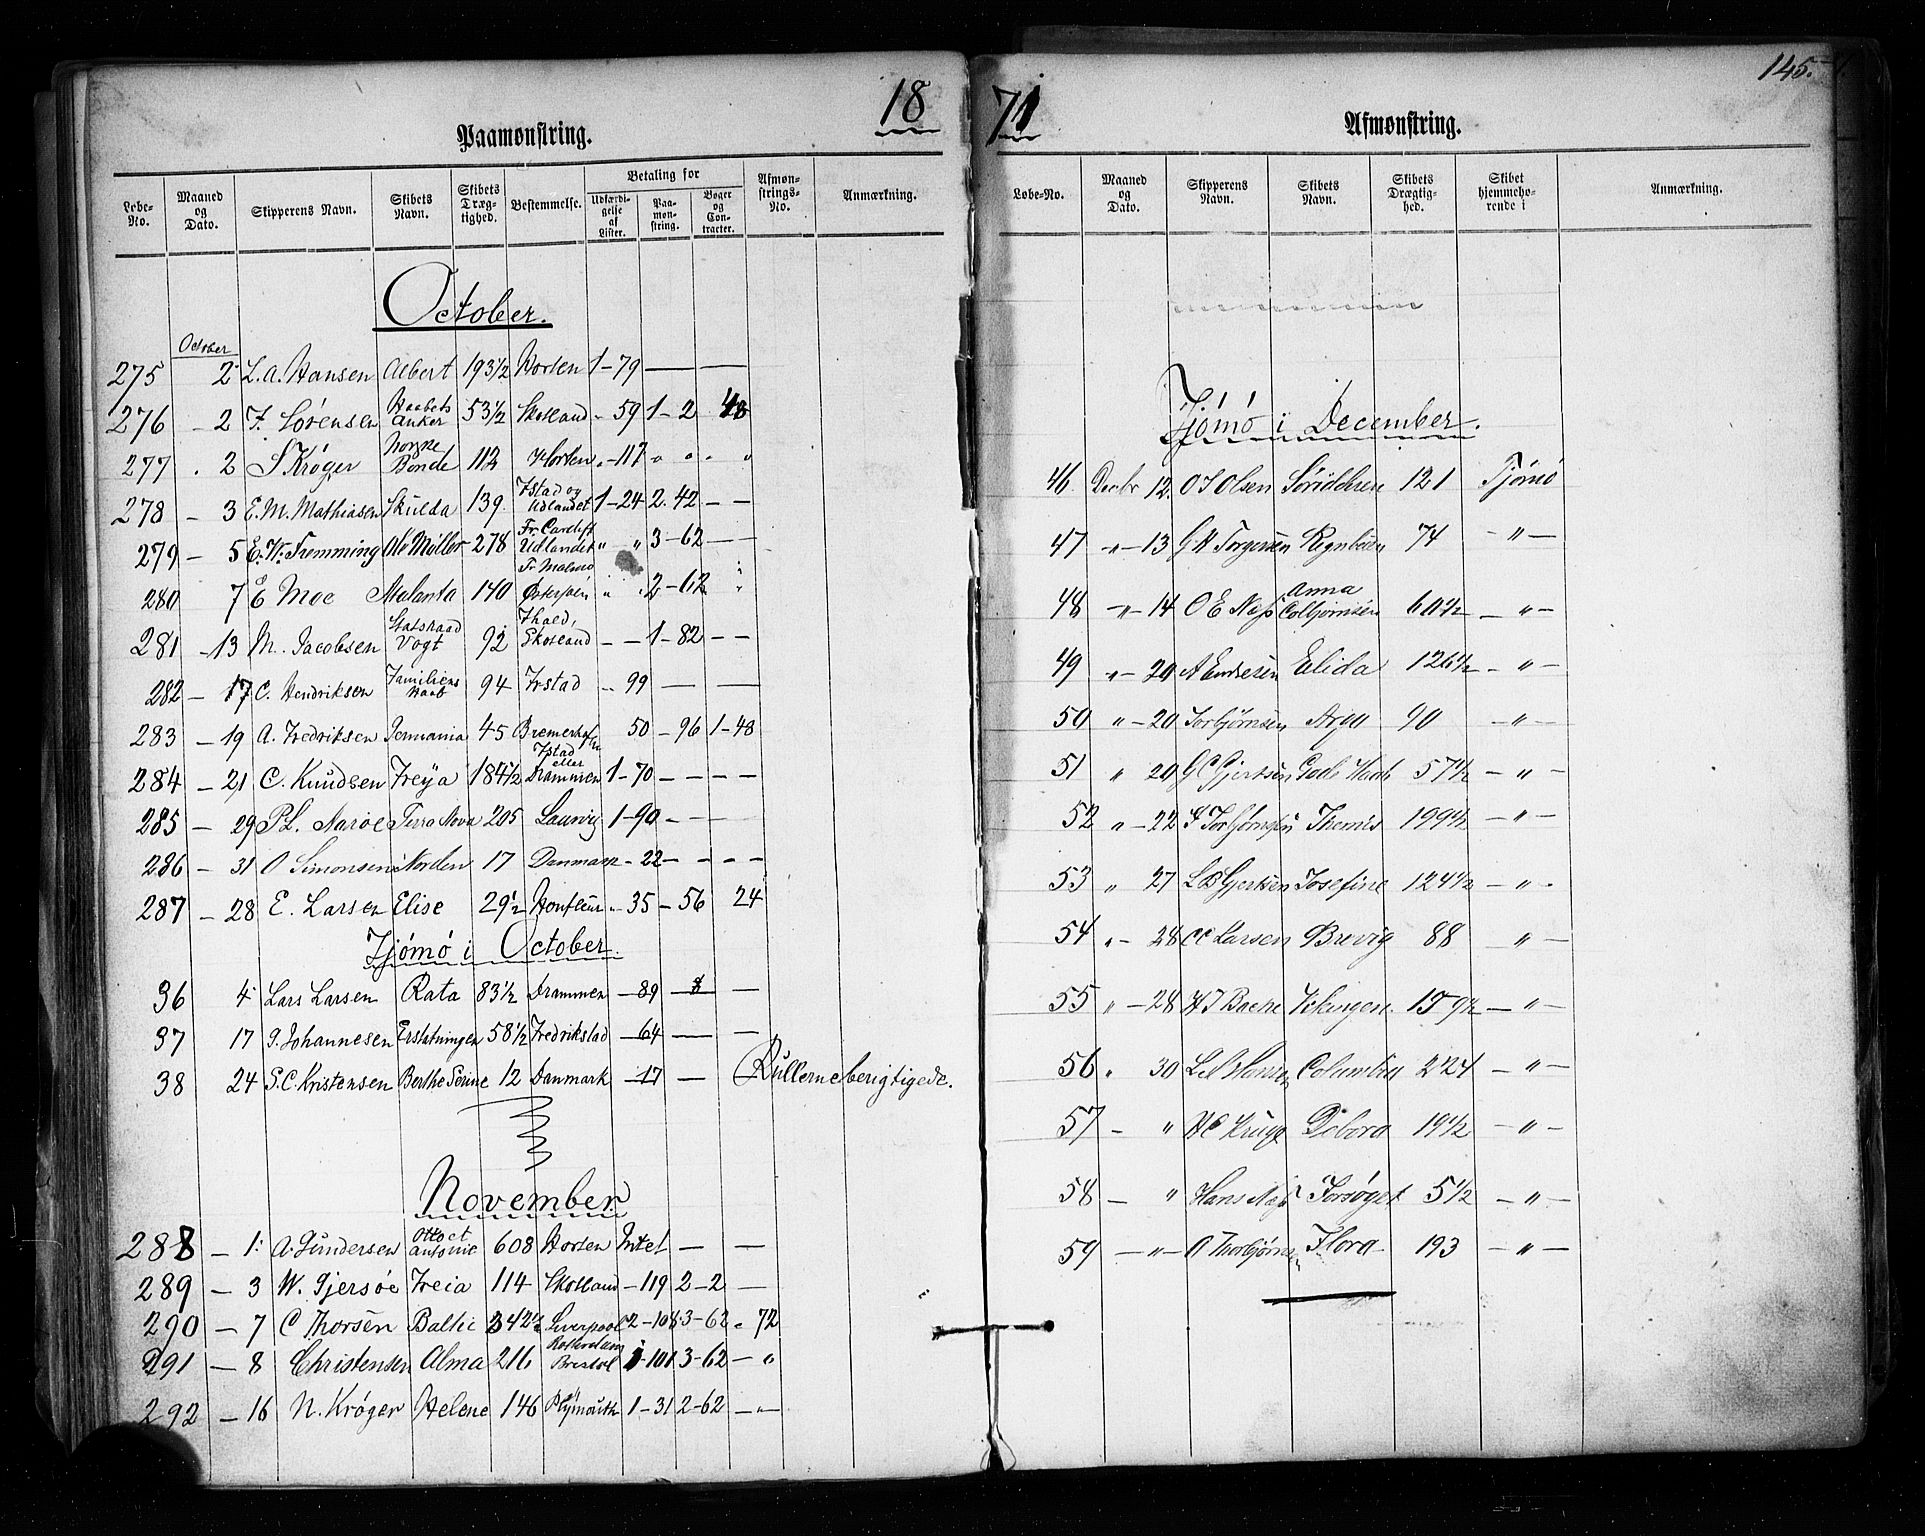 1871
145.
Paamønstring.
Løbe-No. Maaned og Dato. Skipperens Navn. Skibets Navn. Skibets Drægtighed. Bestemmelse. Betaling for Udfærdigelse af Lister. Paamønstring. Bøger og Contracter. Afmønstrings-No. Anmærkning.
October.
October
275 2 L. A. Hansen Albert 193 1/2 Horten 1-79 — —
276 - 2 F. Sørensen Haabets Anker 53 1/2 Skotland - 59 1-2 48
277 . 2 S Krøger Norske Bonde 112 Horten „-117 „ „ „ „
278 - 3 E. M. Mathiasen Skulda 139. Ystad og Udlandet 1-24 2.42 — —
279 - 5 E. W. Fremming Ole Møller 278 Fr. Cardiff Udlandet „ „ 3-62 — —
280 7 E Moe Atalanta 140 Fr Malmø „ „ 2-62 „
281 -13 M. Jacobsen Statsraad Vogt 92 Skotland - - 1-82 - -
282 - 17 C. Hendriksen Familiens Haab 94 Ystad - 99 — —
283 - 19 A. Fredriksen Germania 45 Bremerhafen 50 - 96 1-48
284 - 21 C. Knudsen Freya 184 1/2 Ystad eller Drammen 1-70 - - - -
285 - 29 P L. Marøe Terra Nova 205 Laurvig 1-90 - - -
286 - 31 O Simonsen Norden 17 Danmark - 22 - - - -
287 - 28 E. Larsen Elise 29 1/2 Honfleur - 35 - 56 24
Tjømø i October.
36 4 Lars Larsen Rata 83 1/2 Drammen - 89 - 8 —
37 17 J. Johannesen Erstatningen 58 1/2 Fredrikstad - 64 — —
38 24 S. C. Kristensen Berthe Serine 12 Danmark - 17 — Rullerne berigtigede.
November.
288 - 1. A. Gundersen Otto et Antonie 608 Horten Intet — —
289 - 3 W. Gjersøe Freia 114 Skotland - 119 2-2 —
290 - 7 C Thorsen Baltic 342 1/2 Liverpool 2-108 3-62 „ 72
291 - 8 Christensen Alma 216 Rotterdam Bristol 1-101 3-62 - „
292 - 16 N. Krøger Helene 146 Plymouth 1-31 2-62 - „ -
Afmønstring.
Løbe-No. Maaned og Dato. Skipperens Navn. Skibets Navn. Skibets Drægtighed. Skibet hjemmehørende i Anmærkning.
Tjømø i December.
46 Decbr 12. O J Olsen 121 Tjømø
47 „ - 13 G H Torgersen Regnbuen 74 - „ -
48 - „ - 14 O E Næss Anna Colbjørnsen 60 1/2 - „ -
49 „ - 20 A Endresen Elida 126 1/2 - „ -
50 „ - 20 Torbjørnsen Argo 90 - „ -
51 „ 20 G C Gjertsen Gode Haab 57 1/2 - „ -
52 „ - 22 Torbjørnsen Themis 199 1/2 - „ -
53 „ 27 L B Gjertsen Josefine 124 1/2 - „ -
54 „ - 28 C C Larsen Brevig 88 - „ -
55 „ - 28 H J Bache Vikingen. 159 1/2 - „ -
56 „ 30 Hansen Columbia 224 - „ -
57 - „ H C Debora 19 1/2 - „ -
58 - „ Hans Næss Forsøget 5 1/2 - „ -
59 - „ - A Thorbjørnsen Flora 193 - „ -